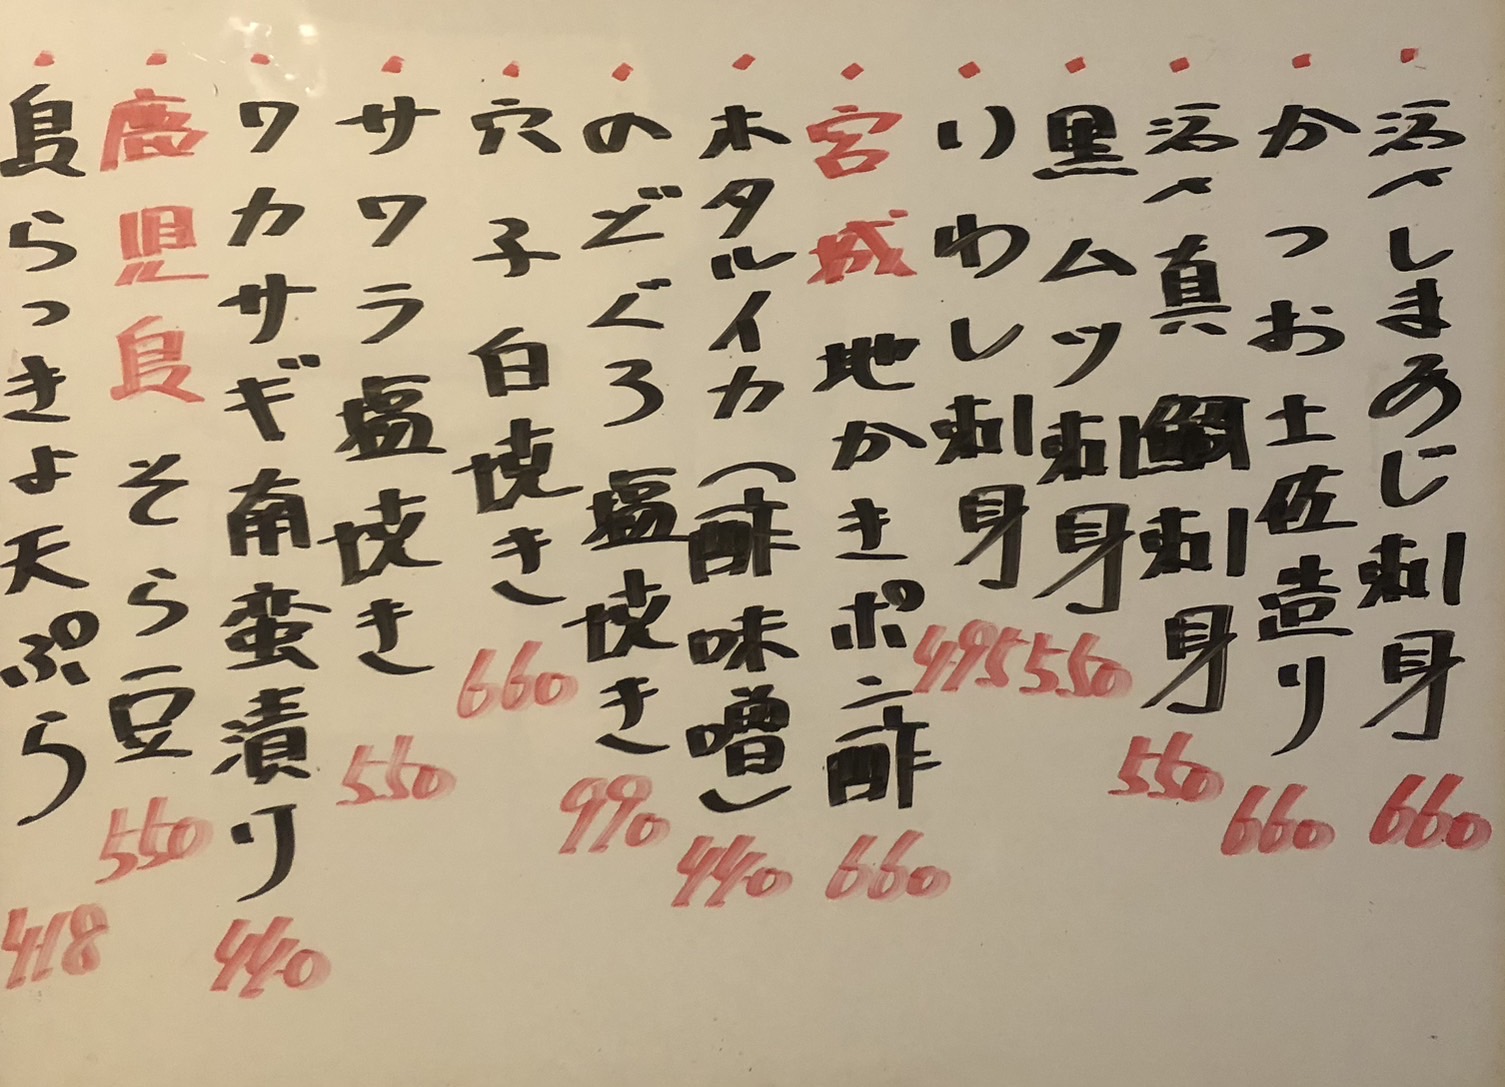 活〆しまあじ刺身 660
かつお土佐造り 660
活〆真鯛刺身 550
黒ムツ刺身 550
いわし刺身 495
宮城 地かきポン酢 660
ホタルイカ(酢味噌) 440
のどぐろ塩焼き 990
穴子白焼き 660
サワラ塩焼き 550
ワカサギ南蛮漬り 440
鹿児島 そら豆 550
島らっきょ天ぷら 418